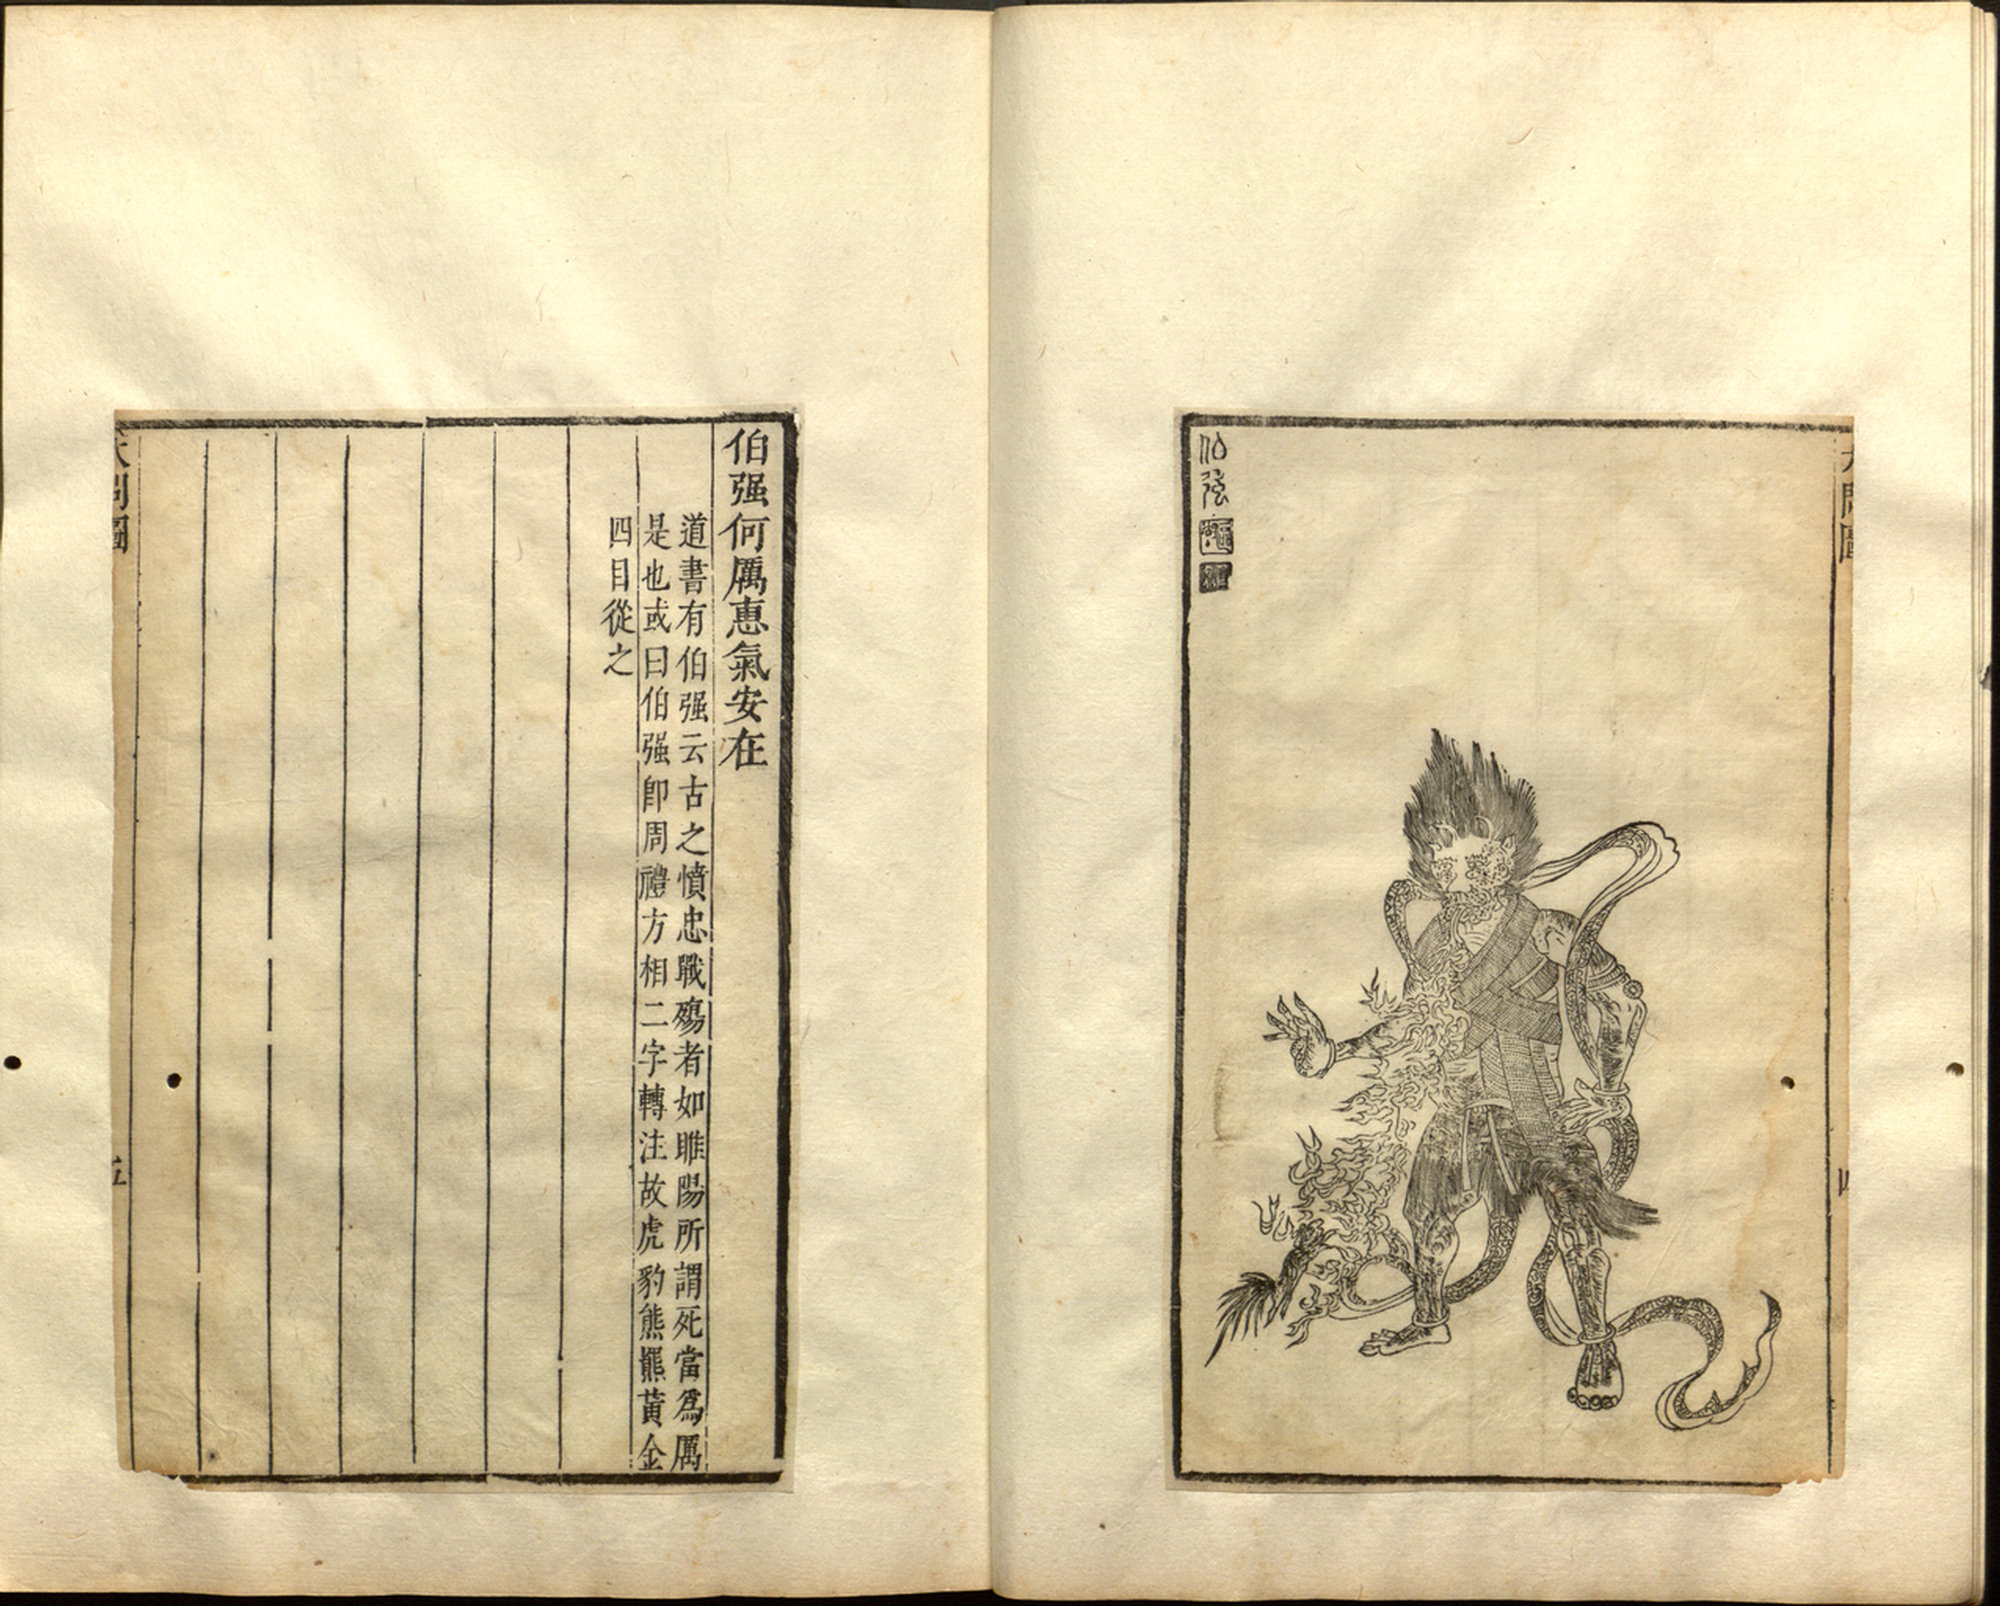 天問圖
四
伯强
伯强何厲惠氣安在
道書有伯强云古之憤忠戰殤者如睢陽所謂死當爲厲
是也或曰伯强卽周禮方相二字轉注故虎豹熊羆黃金
四目從之
天問圖
五